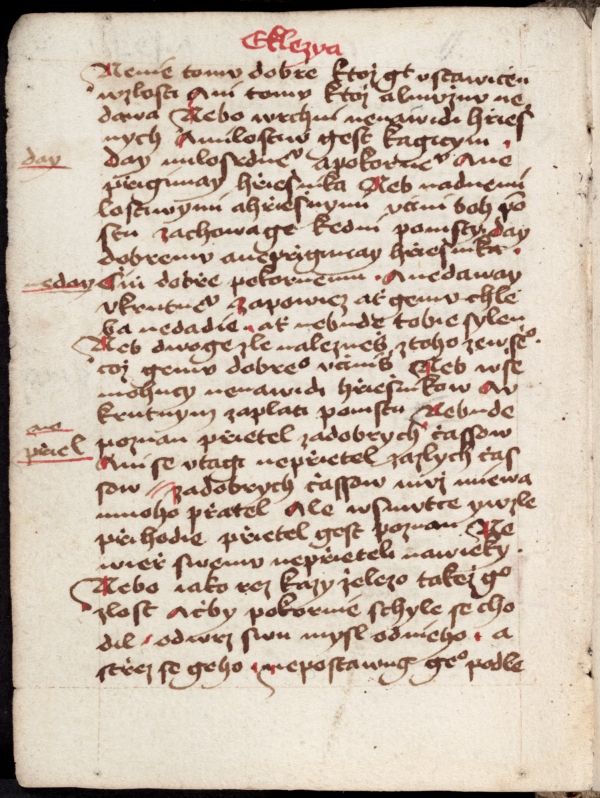 Eklezya
Nenie tomv dobre ktoz gt vstawicen
wzlosti Ani tomv ktoz almvznv ne
dawa Nebo wrchni nenawidi hries
nych A milostiw gest kagicym.
day
day milosrdneo a pokorneo A ne
prigimay hriesnika Neb nad nemi
lostiwymi a hriesnymi vcini boh po
stu zachowage kedni pomsty. day
dobremv a neprigimay hriesnika.
neday
Cin dobre pokornemu. A nedaway
vkrutneo zapowiez at gemv chle
ba nedadie. at nebude tobie sylen
Neb dwoge zle naleznes ztoho zewseo
coz gemv dobreo vcinis Neb wse
mohucy nenawidi hriesnikow A v
krutnym zaplati pomstu Nebude
poznan prietel zadobrych cassow
prietel
Ani se vtagi neprietel zazlych cas
sow zadobrych cassow muz miewa
mnoho pratel Ale wsmutce ywzle
prihodie prietel gest poznan Ne
wier swemv neprieteli nawieky.
Nebo iako rez kazy zelezo takez go
zlost Acby pokornie schyle se cho
dil. odwrz swu mysl odnieho. a
strzez se geho. nepostawug geo podle